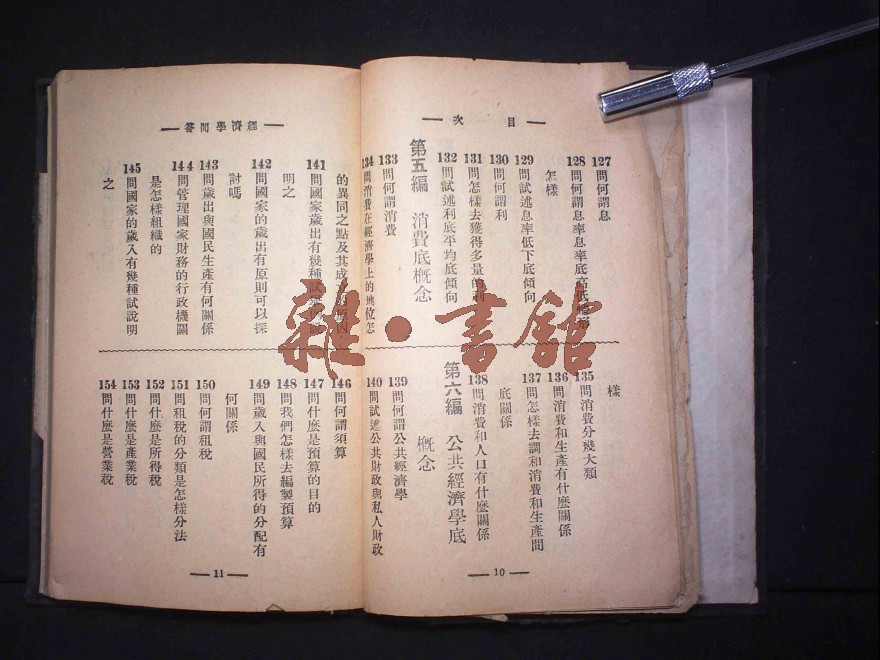 目次
127 問何謂息
128 問何謂息率息率底高低情形
怎樣
129 問試述息率低下底傾向
130 問何謂利
131 問怎樣去獲得多量的利
132 問試述利底平均底傾向
第五編 消費底概念
133 問何謂消費
134 問消費在經濟學上的地位怎
樣
135 問消費分幾大類
136 問消費和生產有什麼關係
137 問怎樣去調和消費和生產間
底關係
138 問消費和人口有什麼關係
第六編 公共經濟學底
概念
139 問何謂公共經濟學
140 問試述公共財政與私人財政
10
經濟學問答
的異同之點及其成立的原因
141 問國家歲出有幾種試
明之
142 問國家的歲出有原則可以探
討嗎
143 問歲出與國民生產有何關係
144 問管理國家財務的行政機關
是怎樣組織的
145 問國家的歲入有幾種試說明
之
146 問何謂須算
147 問什麼是預算的目的
148 問我們怎樣去編製預算
149 問歲入與國民所得的分配有
何關係
150 問何謂租稅
151 問租稅的分類是怎樣分法
152 問什麼是所得稅
153 問什麼是產業稅
154 問什麼是營業稅
11
雜·書館